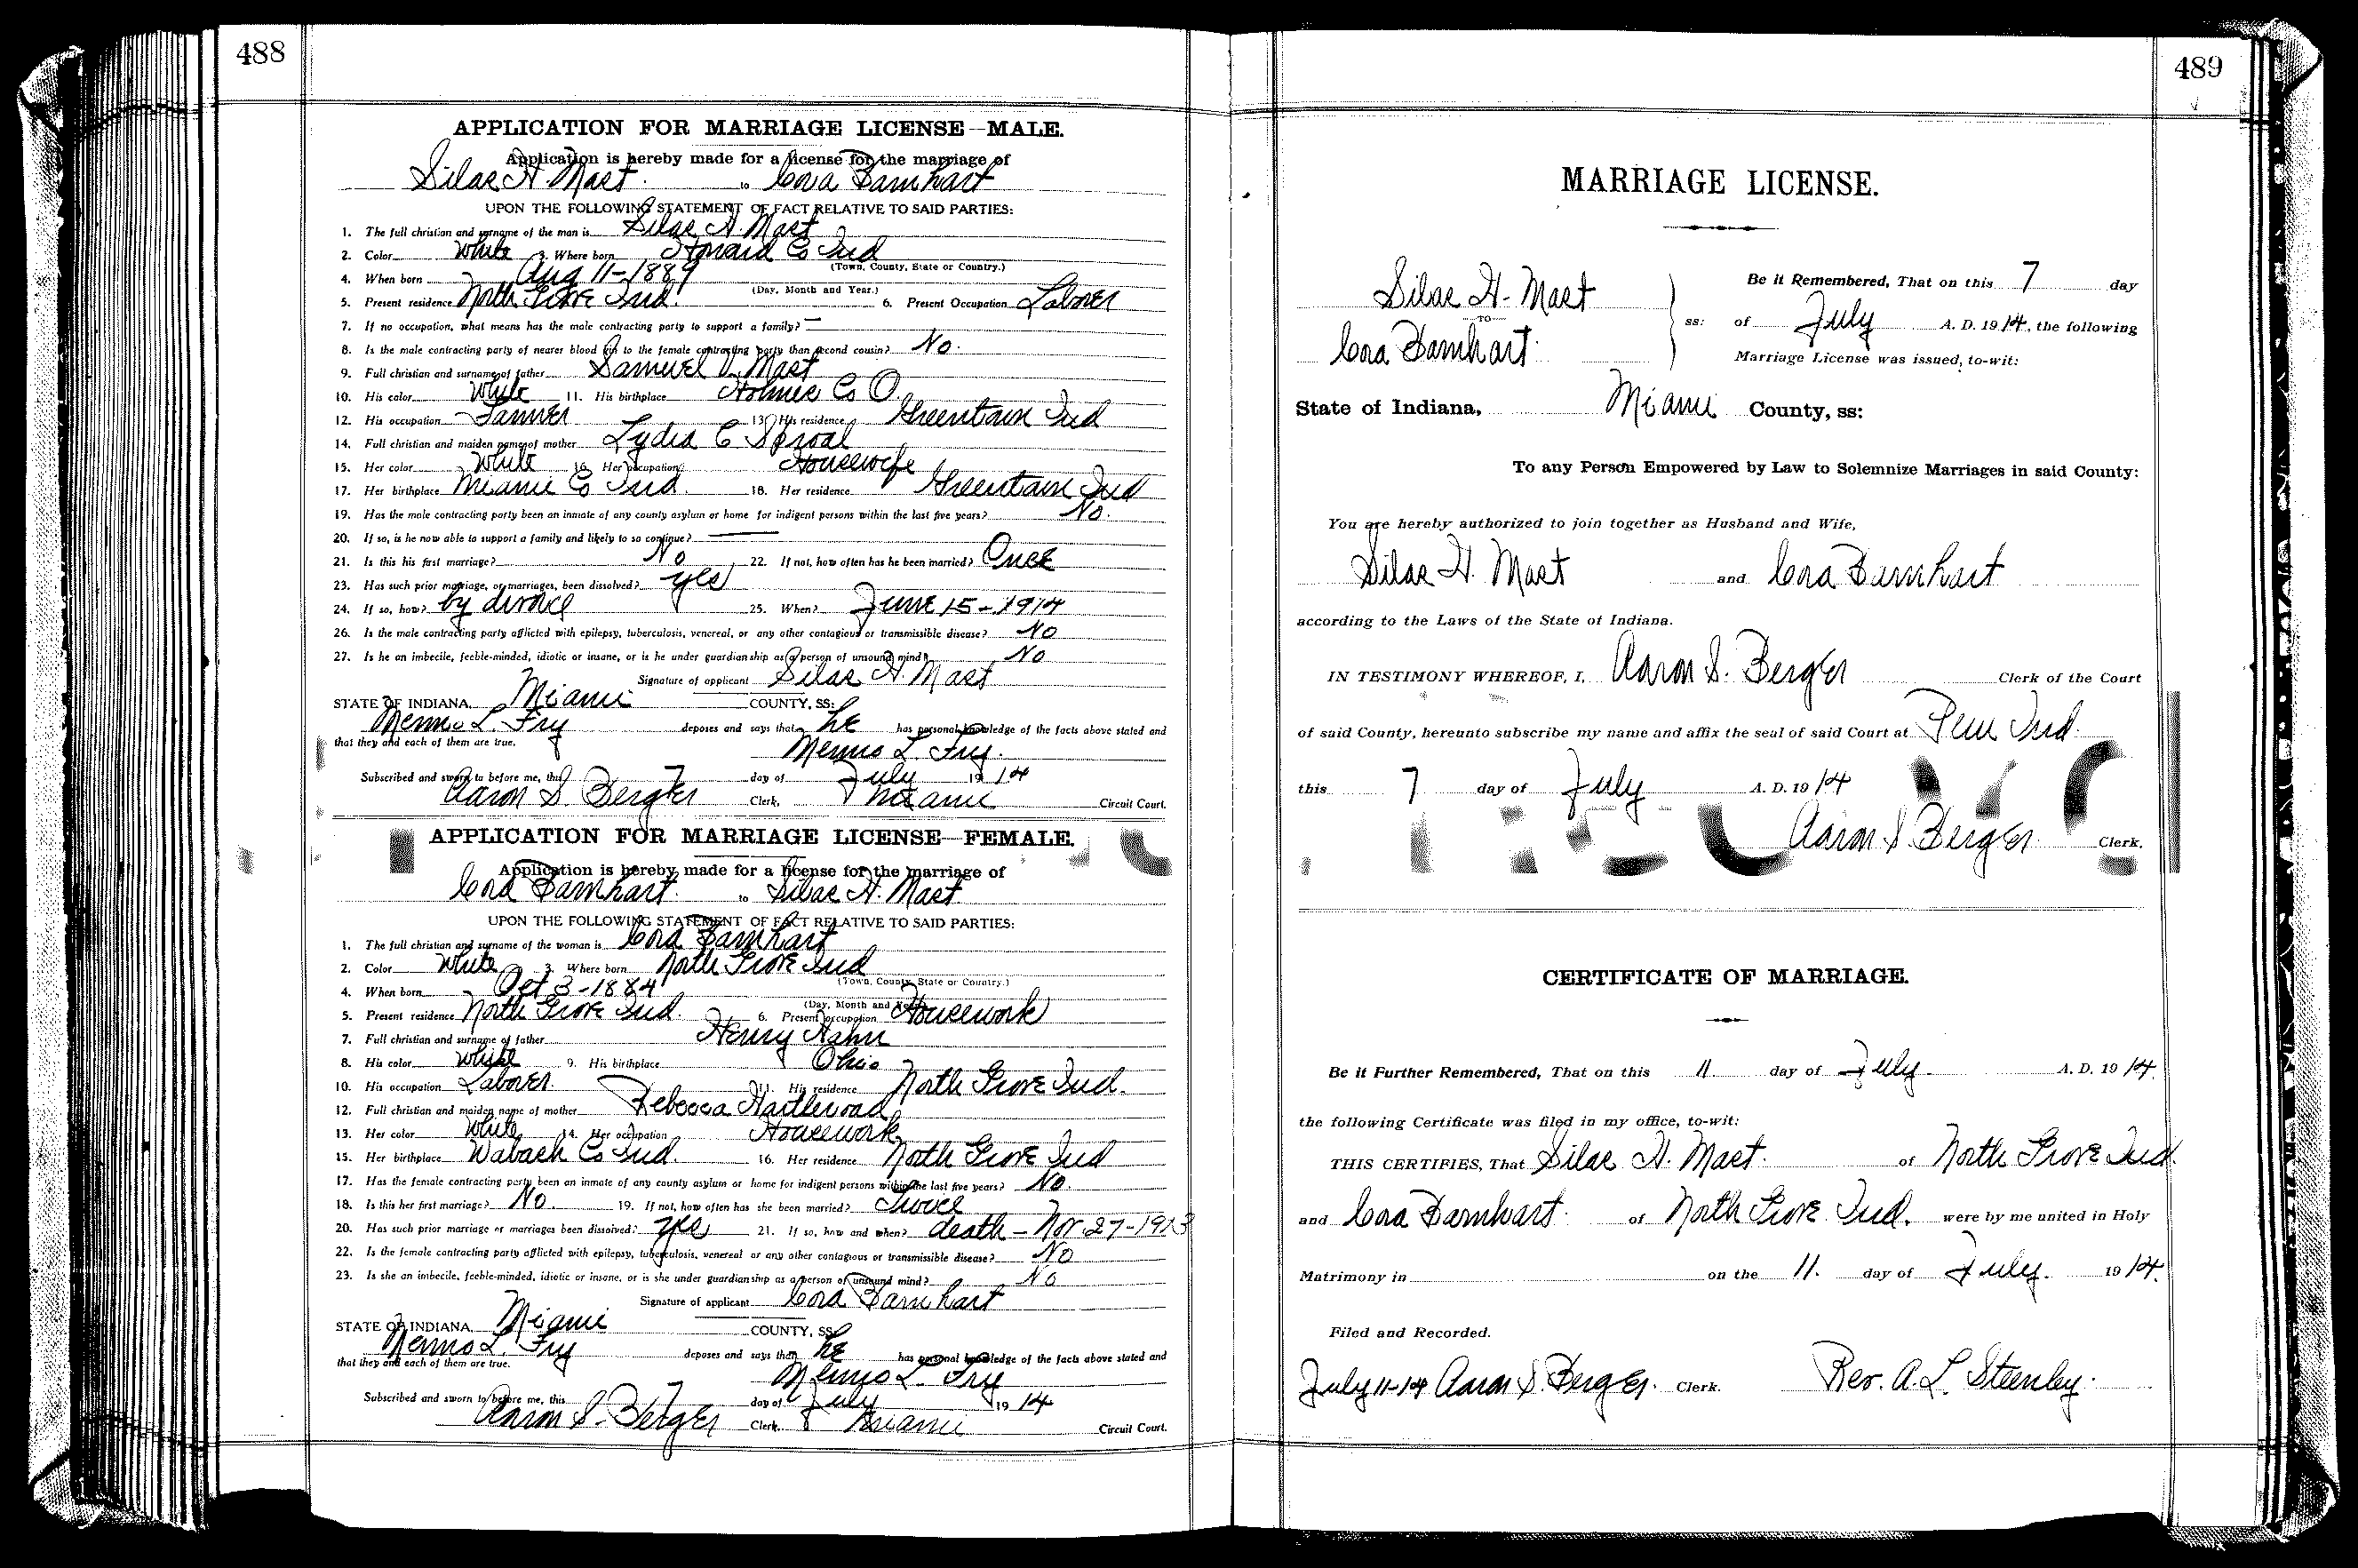 488
APPLICATION FOR MARRIAGE LICENSE—MALE.
Application is hereby made for a license for the marriage of
Silas H. Mast to Cora Barnhart
UPON THE FOLLOWING STATEMENT OF FACT RELATIVE TO SAID PARTIES:
1. The full christian and surname of the man is Silas H. Mast
2. Color White 3. Where born Howard Co Ind
(Town, County, State or Country.)
4. When born Aug 11-1889
(Day, Month and Year.)
5. Present residence North Grove Ind. 6. Present Occupation Laborer
7. If no occupation, what means has the male contracting party to support a family? —
8. Is the male contracting party of nearer blood kin to the female contracting party than second cousin? No.
9. Full christian and surname of father Samuel D. Mast
10. His color White 11. His birthplace Holmes Co O.
12. His occupation Farmer 13. His residence Greentown Ind
14. Full christian and maiden name of mother Lydia C Sproal
15. Her color White 16. Her occupation Housewife
17. Her birthplace Miami Co Ind. 18. Her residence Greentown Ind
19. Has the male contracting party been an inmate of any county asylum or home for indigent persons within the last five years? No.
20. If so, is he now able to support a family and likely to so continue? —
21. Is this his first marriage? No 22. If not, how often has he been married? Once
23. Has such prior marriage, or marriages, been dissolved? yes
24. If so, how? by divorce 25. When? June 15-1914
26. Is the male contracting party afflicted with epilepsy, tuberculosis, venereal, or any other contagious or transmissible disease? No
27. Is he an imbecile, feeble-minded, idiotic or insane, or is he under guardianship as a person of unsound mind? No
Signature of applicant Silas H. Mast
STATE OF INDIANA, Miami COUNTY, SS:
Menno L. Fry deposes and says that he has personal knowledge of the facts above stated and
that they and each of them are true.
Menno L. Fry.
Subscribed and sworn to before me, this 7 day of July 1914
Aaron S. Berger Clerk, Miami Circuit Court.
APPLICATION FOR MARRIAGE LICENSE—FEMALE.
Application is hereby made for a license for the marriage of
Cora Barnhart. to Silas H. Mast
UPON THE FOLLOWING STATEMENT OF FACT RELATIVE TO SAID PARTIES:
1. The full christian and surname of the woman is Cora Barnhart
2. Color White 3. Where born North Grove Ind
(Town, County, State or Country.)
4. When born Oct 3-1884
(Day, Month and Year.)
5. Present residence North Grove Ind. 6. Present occupation Housework
7. Full christian and surname of father Henry Hahn
8. His color White 9. His birthplace Ohio
10. His occupation Laborer. 11. His residence North Grove Ind.
12. Full christian and maiden name of mother Rebecca
13. Her color White 14. Her occupation Housework
15. Her birthplace Wabash Co Ind. 16. Her residence North Grove Ind
17. Has the female contracting party been an inmate of any county asylum or home for indigent persons within the last five years? No.
18. Is this her first marriage? No. 19. If not, how often has she been married? Twice
20. Has such prior marriage or marriages been dissolved? yes 21. If so, how and when? death - Nov 27-1913
22. Is the female contracting party afflicted with epilepsy, tuberculosis, venereal or any other contagious or transmissible disease? No
23. Is she an imbecile, feeble-minded, idiotic or insane, or is she under guardianship as a person of unsound mind? No
Signature of applicant Cora Barnhart
STATE OF INDIANA, Miami COUNTY, SS:
Menno L. Fry deposes and says that he has personal knowledge of the facts above stated and
that they and each of them are true.
Menno L. Fry
Subscribed and sworn to before me, this 7 day of July 1914
Aaron S. Berger Clerk, Miami Circuit Court.
489
MARRIAGE LICENSE.
Silas H. Mast
TO
Cora Barnhart.
ss:
Be it Remembered, That on this 7 day
of July A. D. 1914, the following
Marriage License was issued, to-wit:
State of Indiana, Miami County, ss:
To any Person Empowered by Law to Solemnize Marriages in said County:
You are hereby authorized to join together as Husband and Wife,
Silas H. Mast and Cora Barnhart
according to the Laws of the State of Indiana.
IN TESTIMONY WHEREOF, I, Aaron S. Berger Clerk of the Court
of said County, hereunto subscribe my name and affix the seal of said Court at Peru Ind.
this 7 day of July A. D. 1914
Aaron S. Berger. Clerk.
CERTIFICATE OF MARRIAGE.
Be it Further Remembered, That on this 11 day of July. A. D. 1914.
the following Certificate was filed in my office, to-wit:
THIS CERTIFIES, That Silas H. Mast. of North Grove Ind
and Cora Barnhart. of North Grove Ind. were by me united in Holy
Matrimony in on the 11. day of July. 1914.
Filed and Recorded.
July 11-14 Aaron S. Berger. Clerk. Rev. A. L. Steenley.